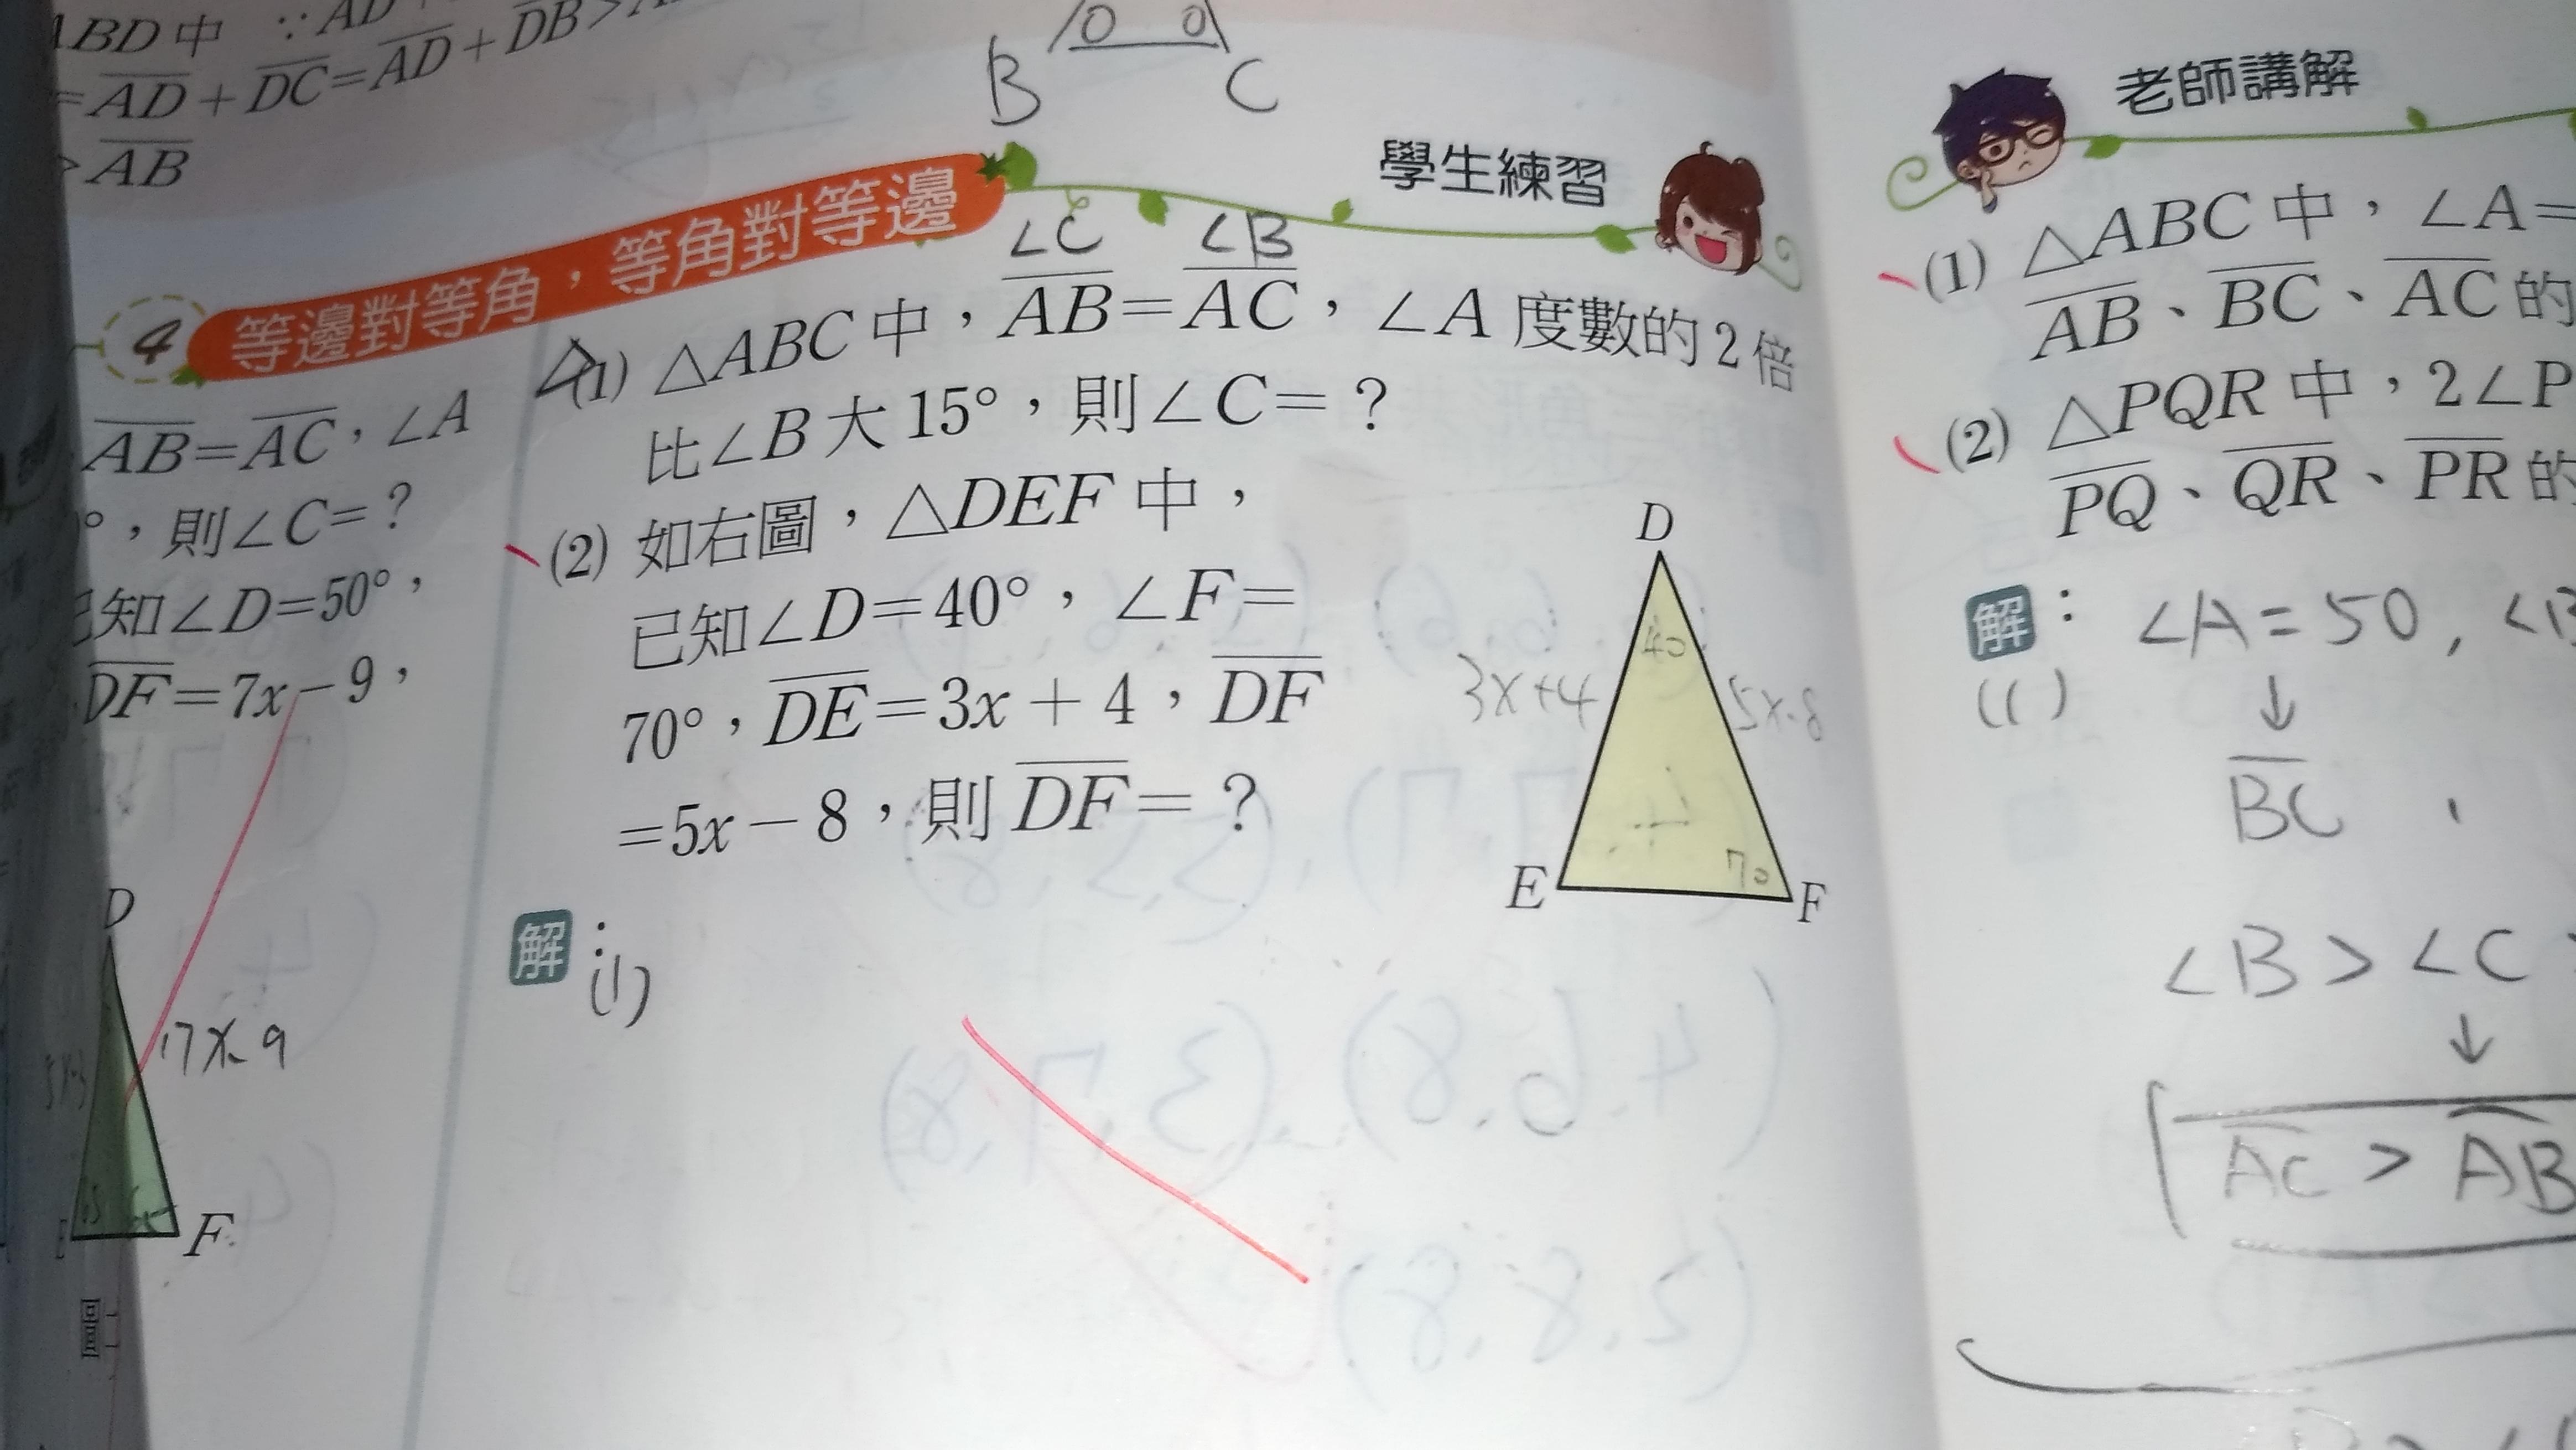 ABD中 ∵AD
=AD+DC=AD+DB>
>AB
B C
4 等邊對等角,等角對等邊
AB=AC,∠A
°,則∠C=?
已知∠D=50°,
DF=7x-9,
D
7x-9
F
圖
學生練習
∠C ∠B
(1) △ABC中,AB=AC,∠A度數的2倍
比∠B大15°,則∠C=?
(2) 如右圖,△DEF中,
已知∠D=40°,∠F=
70°,DE=3x+4,DF
=5x-8,則DF=?
D
40
3x+4
5x-8
70
E
F
解:
(1)
老師講解
(1) △ABC中,∠A=
AB、BC、AC的
(2) △PQR中,2∠P
PQ、QR、PR的
解:∠A=50,∠B
(1)
↓
BC ,
∠B>∠C
↓
AC>AB